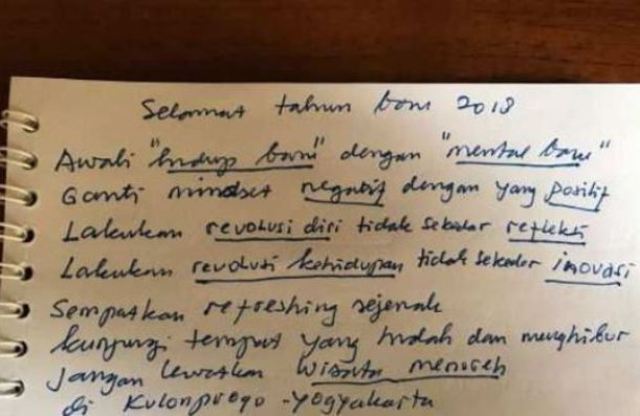 Selamat tahun baru 2018
Awali "hidup baru" dengan "mental baru"
Ganti mindset negatif dengan yang positif
Lakukan revolusi diri tidak sekedar refleksi
Lakukan revolusi kehidupan tidak sekedar inovasi
Sempatkan refreshing sejenak
kunjungi tempat yang indah dan menghibur
Jangan lewatkan wisata menoreh
di Kulonprogo - Yogyakarta